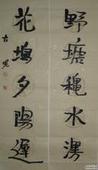 野塘穐水漫
花塢夕陽遲